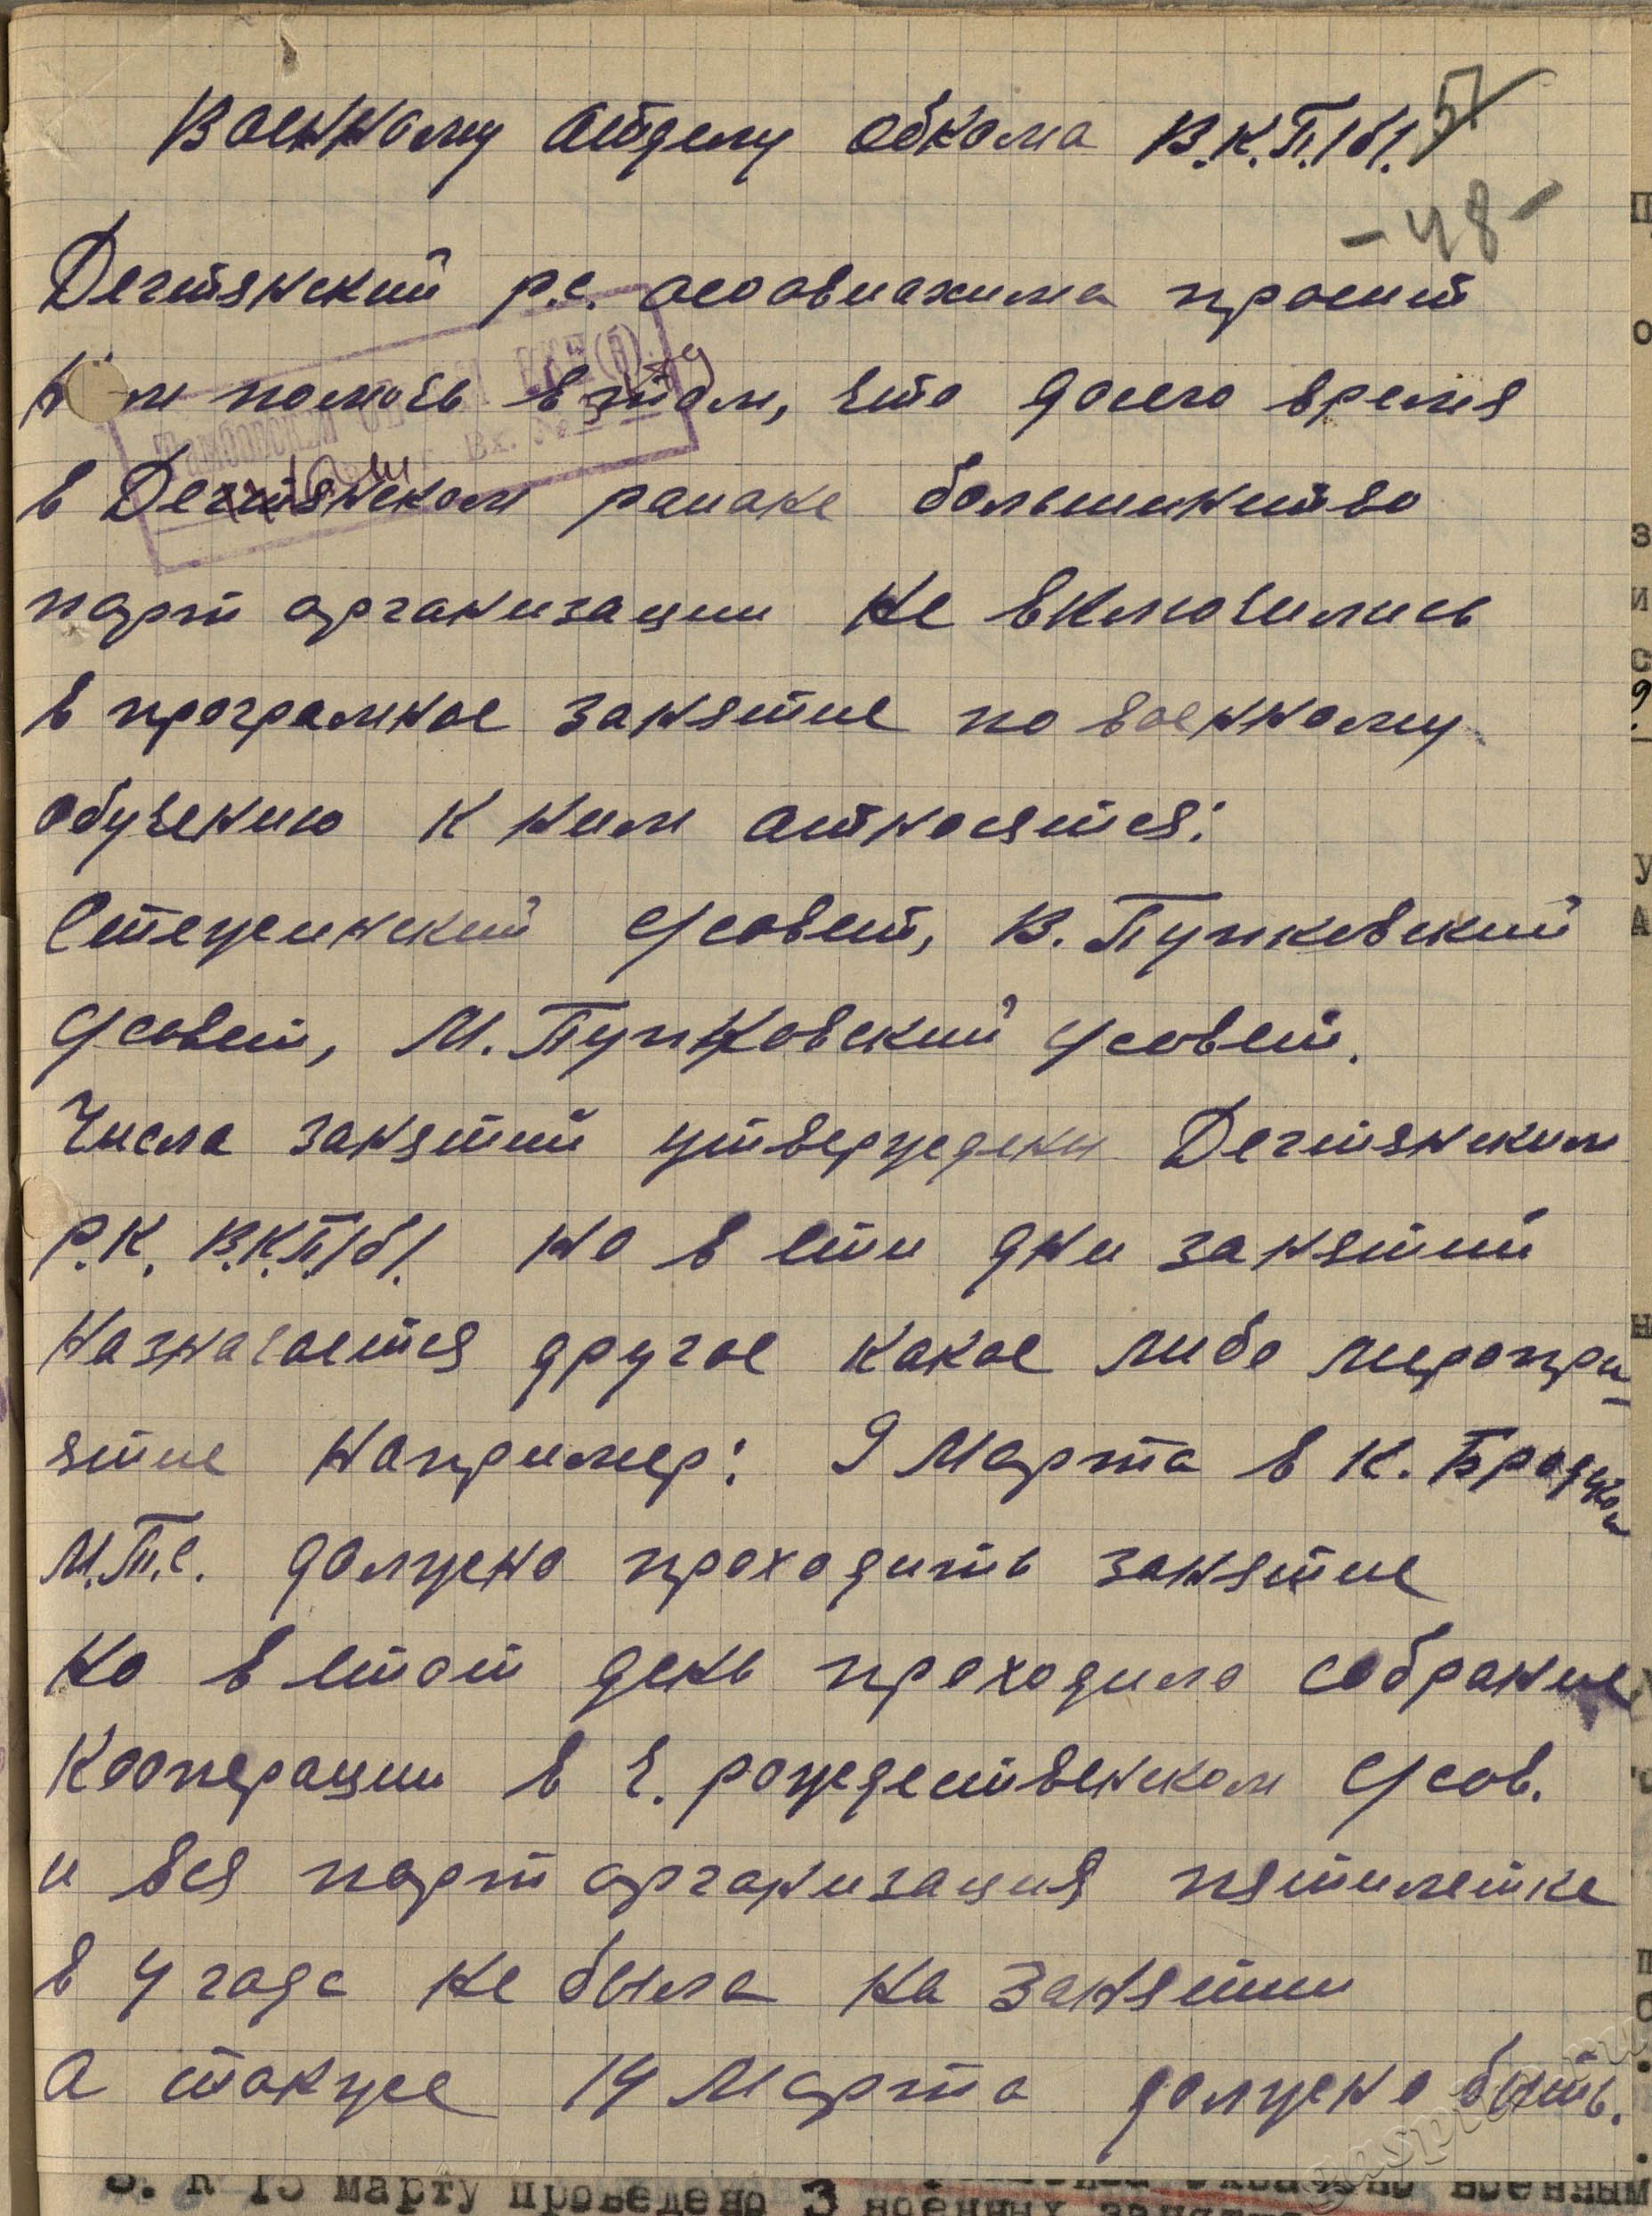 Военному отделу обкома В.К.П./б/.
57
-48-
Дегтянский р.с. осоавиахима просит
помочь в том, что до сего время
в Дегтянском раионе большинство
парт организации не включились
в програмное занятие по военному
обучению к ним относятся:
Стежинский с/совет, В. Пупковский
с/совет, М. Пупковский с/совет.
Числа занятий утверждены Дегтянским
Р.К. В.К.П/б/. но в ети дни занятий
назначается другое какое либо меропри-
ятие например: 9 Марта в К. Бродской
М.Т.С. должно проходить занятие
но в етот день проходило собрание
Кооперации в Ч. рождественском с/сов.
и вся парт организация пятилетке
в 4 года не была на занятии
А также 14 Марта должно быть.
3. К 15 марту проведено 3 военных